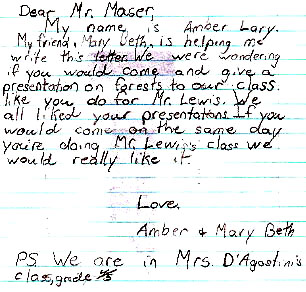 Dear Mr. Maser,
My name is Amber Lary.
My friend, Mary Beth, is helping me
write this letter. We were wondering
if you would come and give a
presentation on forests to our class.
like you do for Mr. Lewis. We
all liked your presentations. If you
would come on the same day
you're doing Mr. Lewis's class we
would really like it.
Love,
Amber + Mary Beth
PS. We are in Mrs. D'Agostini's
class, grade